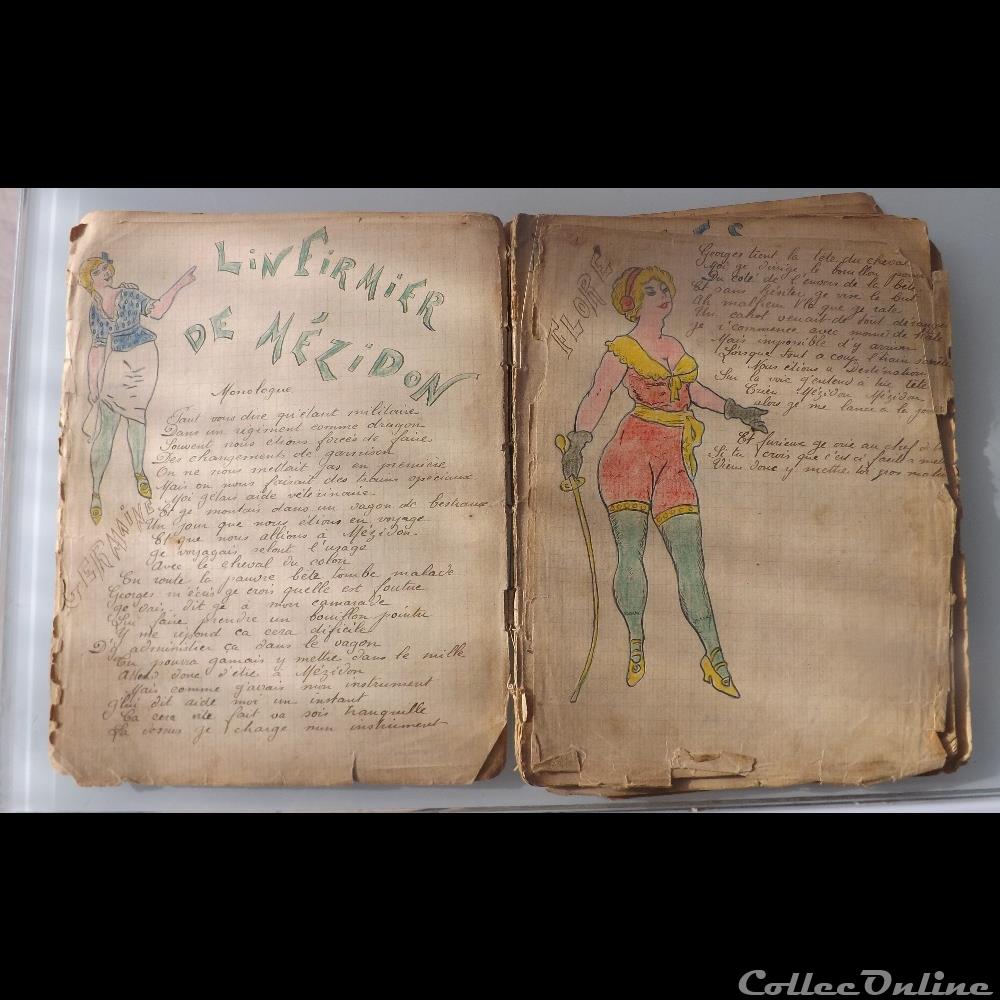 LINFIRMIER
DE MÉZIDON
Monologue
Faut vous dire qu'étant militaire
Dans un régiment comme dragon
Souvent nous étions forcés de faire
Des changements de garnison
On ne nous mettait pas en première
Mais on nous faisait des trains spéciaux
Moi gétais aide vétérinaire
Et ge montais dans un vagon de bestiaux
Un jour que nous étions en voyage
Et que nous allions à Mézidon
ge voyagais selont l'usage
Avec le cheval du colon
En route la pauvre bête tombe malade
Georges m'écris ge crois quelle est foutue
ge vais dit ge à mon camarade
Lui faire prendre un bouillon pointu
Y me répond ca cera dificile
D'y administrer ça dans le vagon
Tu pourra gamais y mettre dans le mille
Attend donc d'être à Mézidon
Mais comme g'avais mon instrument
glui dit aide moi un instant
Ca cera vite fait va sois tranquille
La dessus je charge mon instrument
GERMAINE
FLORE
Georges tient la tête du cheval
Moi ge dirige le bouillon
Du coté de l'envers de la bête
Et sans hésiter ge vise le but
Ah malheur v'la que ge rate
Un cahot venait de tout
je r'commence avec
Mais impossible d'y arriver
Lorsque tout a coup l'train
Nous étions a Destination
Sur la voie g'entend a tue tête
Crier Mézidon Mézidon
alors ge me lance a la
Et furieux ge crie au chef
Si tu crois que c'est ci facile
Viens donc y mettre toi gros
ColleeOnline